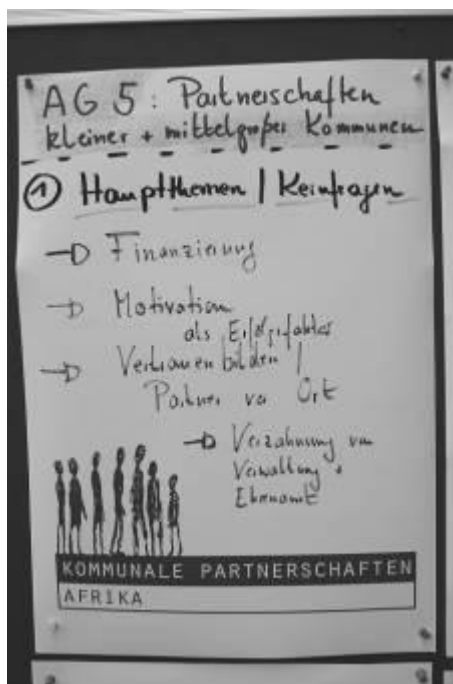 AG 5: Partnerschaften
kleiner + mittelgroßer Kommunen
① Hauptthemen / Kernfragen
→ Finanzierung
→ Motivation
als Erfolgsfaktor
→ Vertrauen bilden /
Partner vor Ort
→ Verzahnung von
Verwaltung +
Ehrenamt
KOMMUNALE PARTNERSCHAFTEN
AFRIKA